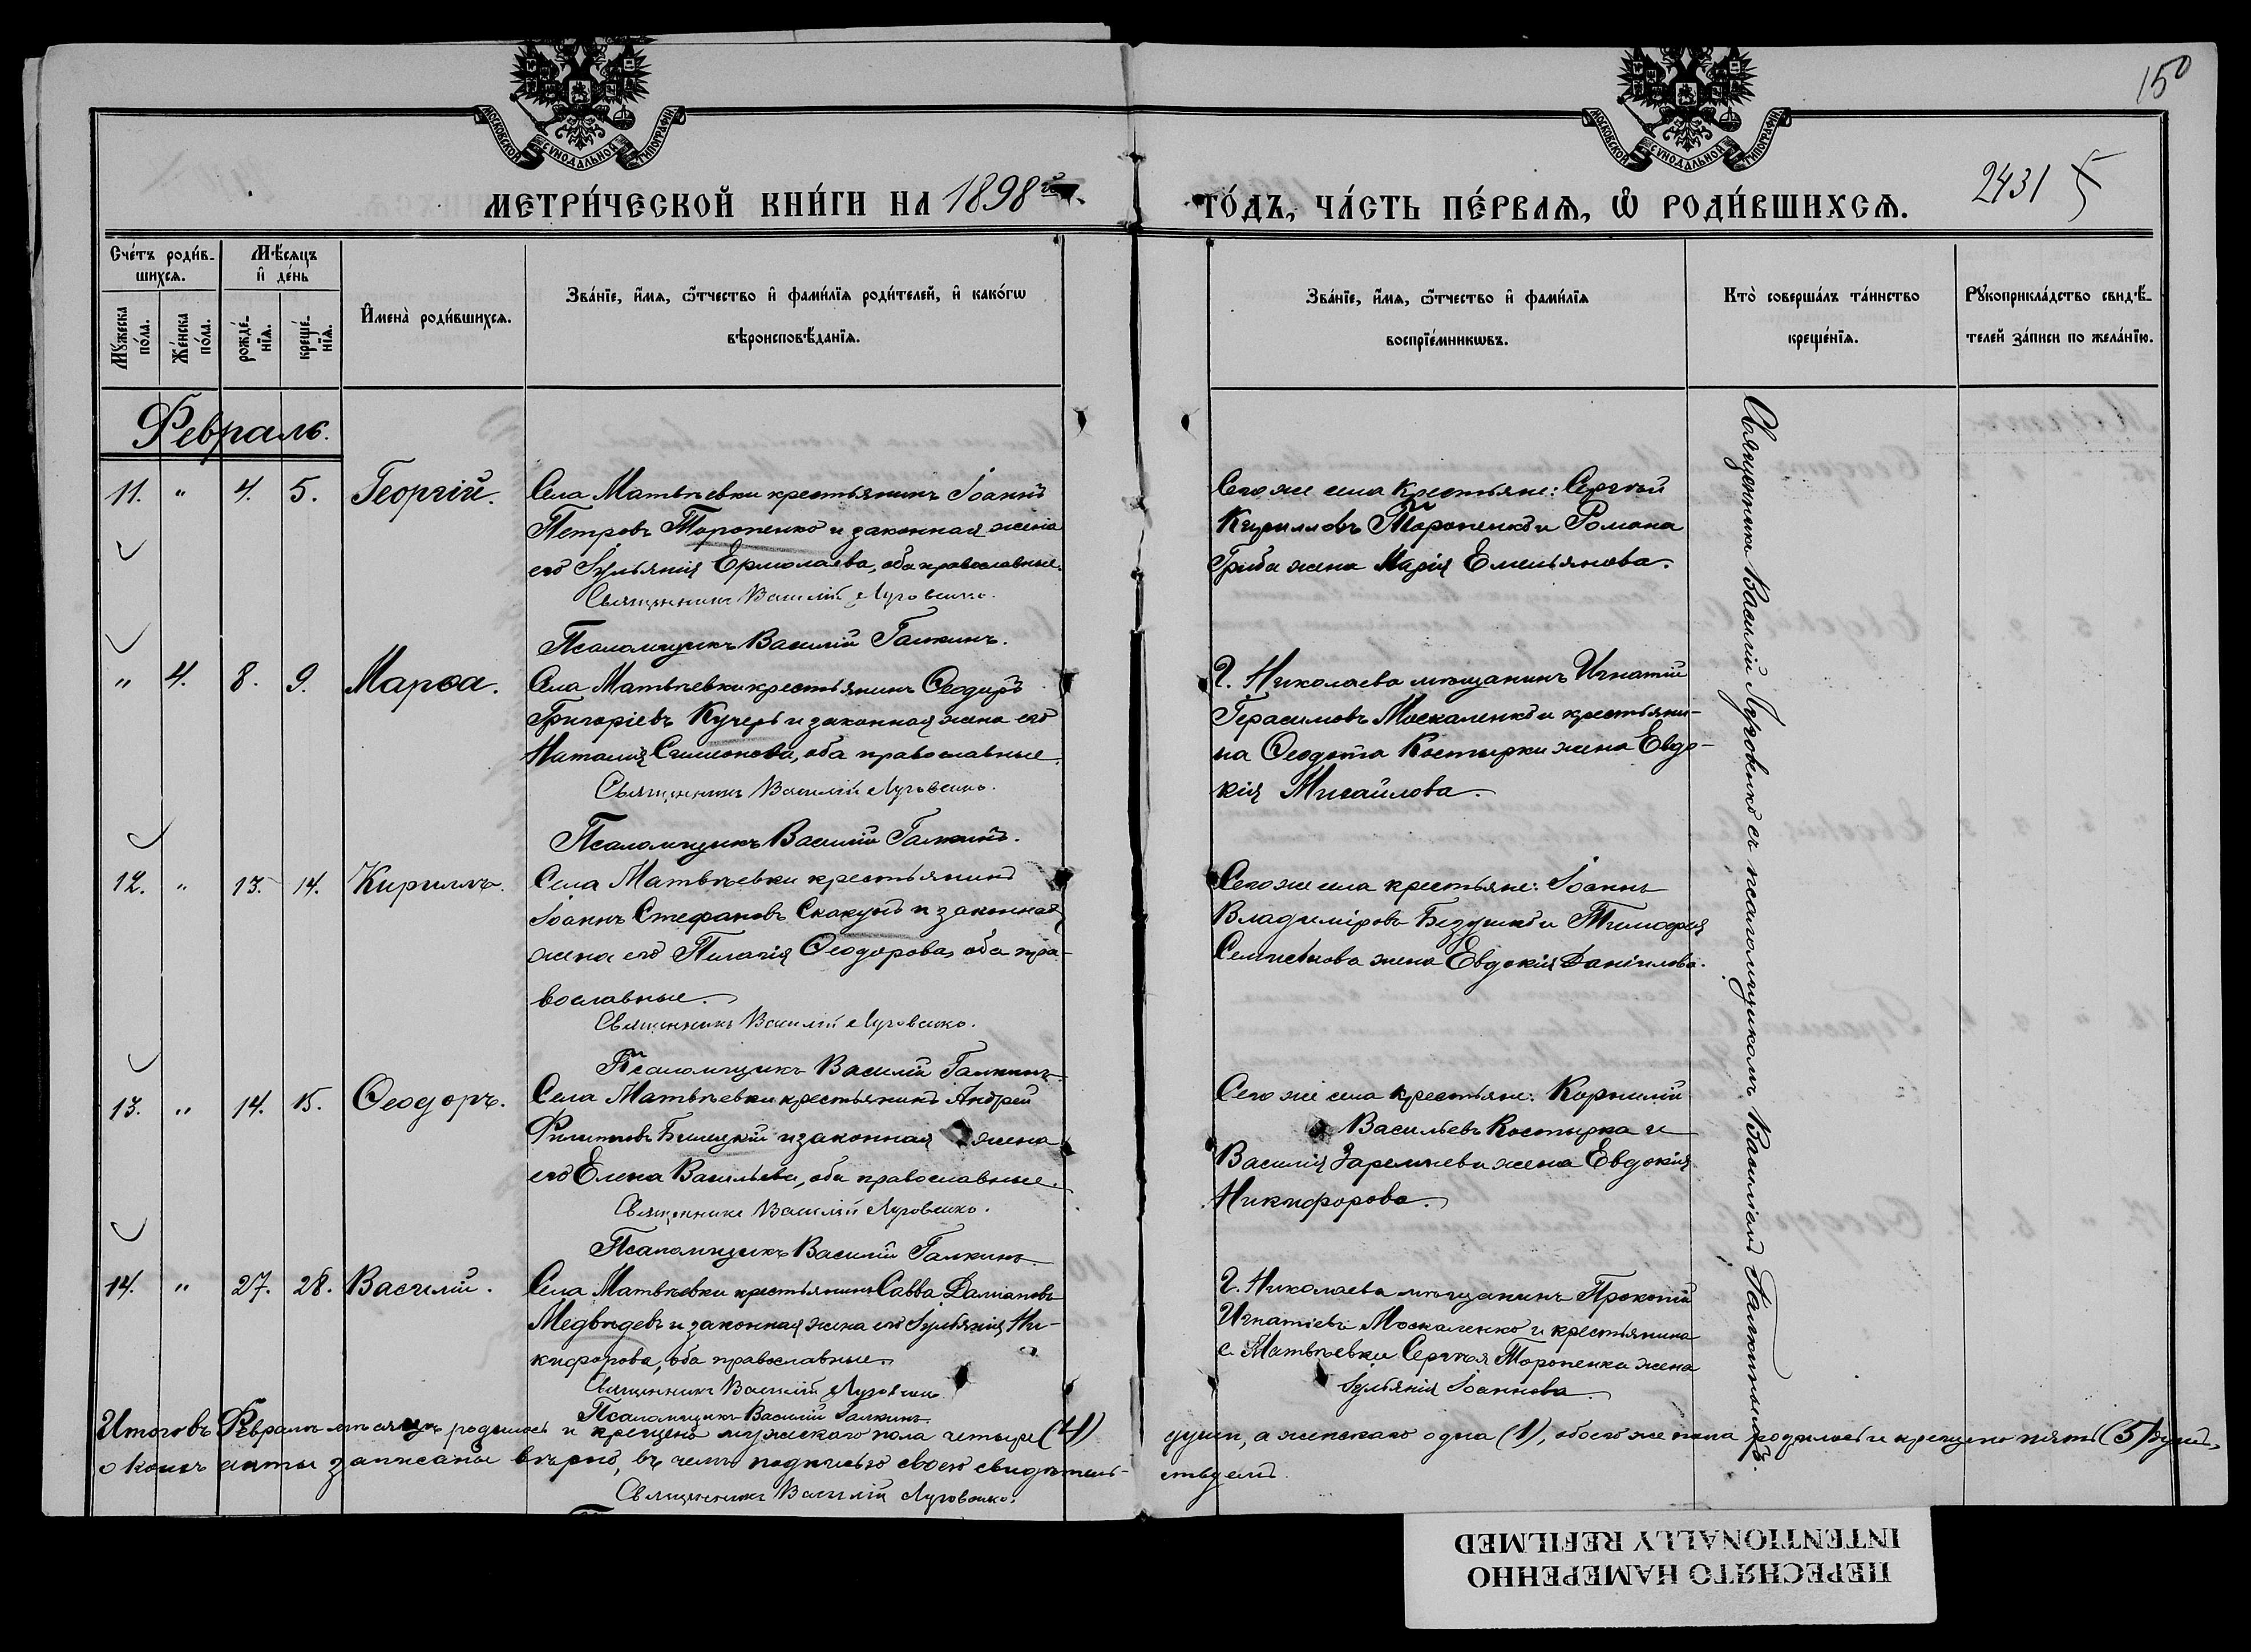 150
2431
МОСКОВСКОЙ СѴНОДАЛЬНОЙ ТИПОГРАФІИ
МОСКОВСКОЙ СѴНОДАЛЬНОЙ ТИПОГРАФІИ
МЕТРИ́ЧЕСКОЙ КНИ́ГИ НА 1898й
ГО́ДЪ, ЧА́СТЬ ПЕ́РВАѦ, Ѽ РОДИ́ВШИХСѦ.
Сче́тъ роди́в-
шихсѧ.
Мѣ́сяцъ
и҆ де́нь
Мꙋ́жеска
по́ла.
Же́нска
по́ла.
рожде́-
нїѧ.
креще́-
нїѧ.
И҆мена̀ роди́вшихсѧ.
Зва́нїе, и҆́мѧ, ѻ҆́тчество и҆ фами́лїѧ роди́телей, и҆ како́гѡ
вѣроисповѣ́данїѧ.
Зва́нїе, и҆́мѧ, ѻ҆́тчество и҆ фами́лїѧ
воспрїе́мникѡвъ.
Кто̀ соверша́лъ та́инство
креще́нїѧ.
Рꙋкоприкла́дство свидѣ́-
телей за́писи по жела́нїю.
Февраль.
11. " 4. 5. Георгій.
Села Матвѣевки крестьянинъ Іоаннъ
Петровъ Торопенко и законная жена
его Іульянія Ермолаева, оба православные.
Священникъ Василій Луговенко.
Псаломщикъ Василій Галкинъ.
Сего же села крестьяне: Сергѣй
Кирилловъ Торопенко и Романа
Гриба жена Марія Емельянова.
" 4. 8. 9. Марѳа.
Села Матвѣевки крестьянинъ Ѳеодоръ
Григоріевъ Кучеръ и законная жена его
Наталія Симеонова, оба православные.
Священникъ Василій Луговенко.
Псаломщикъ Василій Галкинъ.
Г. Николаева мѣщанинъ Игнатій
Герасимовъ Москаленко и крестьяни-
на Ѳеодота Костырки жена Евдо-
кія Михайлова.
12. " 13. 14. Кириллъ.
Села Матвѣевки крестьянинъ
Іоаннъ Стефановъ Скакунъ и законная
жена его Пелагія Ѳеодорова, оба пра-
вославные.
Священникъ Василій Луговенко.
Псаломщикъ Василій Галкинъ.
Сего же села крестьяне: Іоаннъ
Владиміровъ и Тимоѳея
жена Евдокія Даніилова.
13. " 14. 15. Ѳеодоръ.
Села Матвѣевки крестьянинъ Андрей
Филипповъ Билецкій и законная жена
его Елена Васильева, оба православные.
Священникъ Василій Луговенко.
Псаломщикъ Василій Галкинъ.
Сего же села крестьяне: Корнилій
Васильевъ Костырка и
Василія жена Евдокія
Никифорова.
14. " 27. 28. Василій.
Села Матвѣевки крестьянинъ Савва Даміановъ
Медвѣдевъ и законная жена его Іульянія Ни-
кифорова, оба православные.
Священникъ Василій Луговенко
Псаломщикъ Василій Галкинъ.
Г. Николаева мѣщанинъ Прокопій
Игнатіевъ Москаленко и крестьянина
с. Матвѣевки Сергѣя Торопенка жена
Іульянія Іоаннова.
Священникъ Василій Луговенко съ псаломщикомъ Василіемъ Галкинымъ.
Итого въ Февралѣ мѣсяцѣ родилось и крещено мужскаго пола четыре (4)
души, а женскаго одна (1), обоего же пола родилось и крещено пять (5) душъ,
о коихъ акты записаны вѣрно, въ чемъ подписью своею свидѣтель-
ствуемъ.
Священникъ Василій Луговенко.
ПЕРЕСНЯТО НАМЕРЕННО
INTENTIONALLY REFILMED